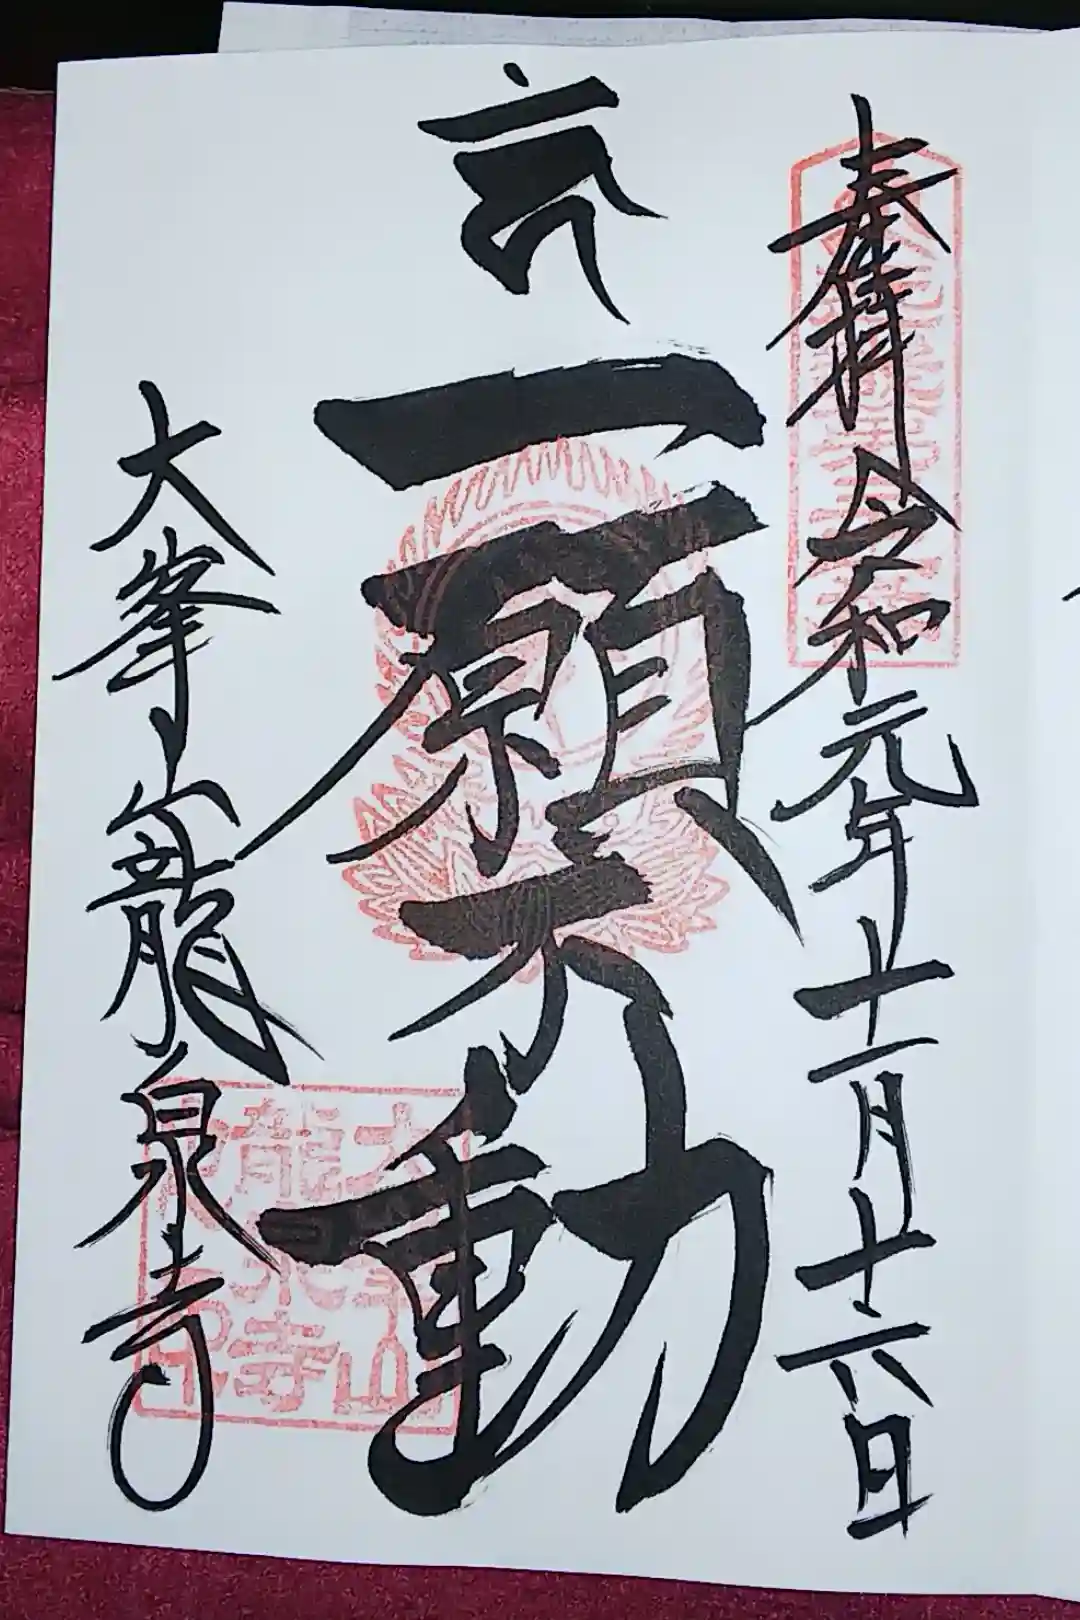 奉拝 令和元年十一月十六日
一願不動
大峯山龍泉寺
大峯山
龍泉寺
印